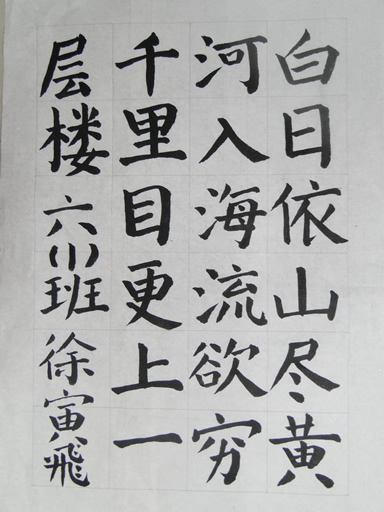 白日依山尽黄
河入海流欲穷
千里目更上一
层楼 六(1)班 徐寅飛